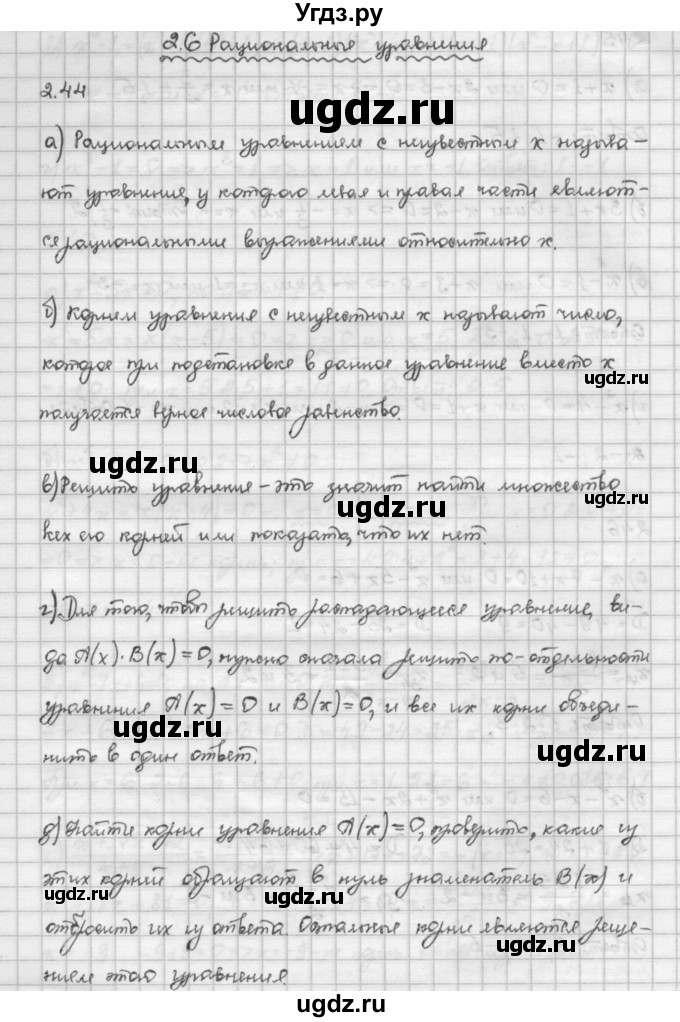 Угдз.ру
2.6 Рациональные уравнения
2.44
ugdz.ru
а) Рациональным уравнением с неизвестным x называ-
ют уравнения, у которого левая и правая части являют-
ся рациональными выражениями относительно x.
б) Корнем уравнения с неизвестным x называют число,
которое при подстановке в данное уравнение вместо x
ugdz.ru
получается верное числовое равенство.
ugdz.ru
в) Решить уравнение – это значит найти множество
ugdz.ru
ugdz.ru
всех его корней или показать, что их нет.
г). Для того, чтобы решить распадающееся уравнение, ви-
да A(x)·B(x)=0, нужно сначала решить по-отдельности
ugdz.ru
уравнения A(x)=0 и B(x)=0, и все их корни объеди-
ugdz.ru
нить в один ответ.
д) Найти корни уравнения A(x)=0, проверить, какие из
этих корней обращают в нуль знаменатель B(x) и
ugdz.ru
ugdz.ru
отбросить их из ответа. Остальные корни являются реше-
нием этого уравнения.
ugdz.ru
ugdz.ru